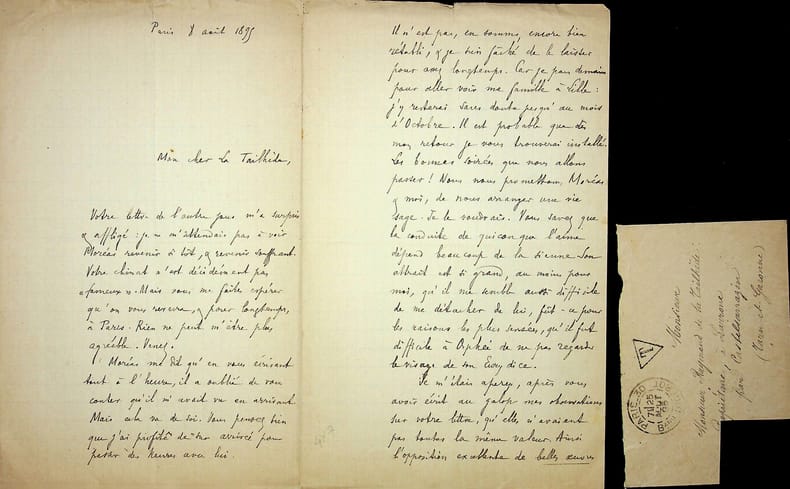 Paris 8 août 1895
Mon cher La Tailhède,
Votre lettre de l'autre jour m'a surpris
& affligé : je ne m'attendais pas à voir
Moréas revenir si tôt, & revenir souffrant.
Votre climat n'est décidément pas
« fameux ». Mais vous me faites espérer
qu'on vous reverra, & pour longtemps,
à Paris. Rien ne peut m'être plus
agréable. Venez.
Moréas me dit qu'en vous écrivant
tout à l'heure, il a oublié de vous
conter qu'il m'avait vu en arrivant.
Mais cela va de soi. Vous pensez bien
que j'ai profité de son arrivée pour
passer des heures avec lui.
Il n'est pas, en somme, encore bien
rétabli, & je suis fâché de le laisser
pour assez longtemps. Car je pars demain
pour aller voir ma famille à Lille :
j'y resterai sans doute jusqu'au mois
d'Octobre. Il est probable que dès
mon retour je vous trouverai installé.
Les bonnes soirées que nous allons
passer ! Nous nous promettons, Moréas
& moi, de nous arranger une vie
sage. Je le voudrais. Vous savez que
la conduite de quiconque l'aime
dépend beaucoup de la sienne. Son
attrait est si grand, au moins pour
moi, qu'il me semble aussi difficile
de me détacher de lui, fût-ce pour
les raisons les plus sensées, qu'il fut
difficile à Orphée de ne pas regarder
le visage de son Eurydice.
Je m'étais aperçu, après vous
avoir écrit au galop mes observations
sur votre lettre, qu'elles n'avaient
pas toutes la même valeur. Ainsi
l'opposition excellente de belles œuvres
Monsieur
Monsieur Raymond de la Tailhède
Propriétaire, à
par Castelsarrazin
(Tarn et Garonne)
T
PARIS
AOUT
95